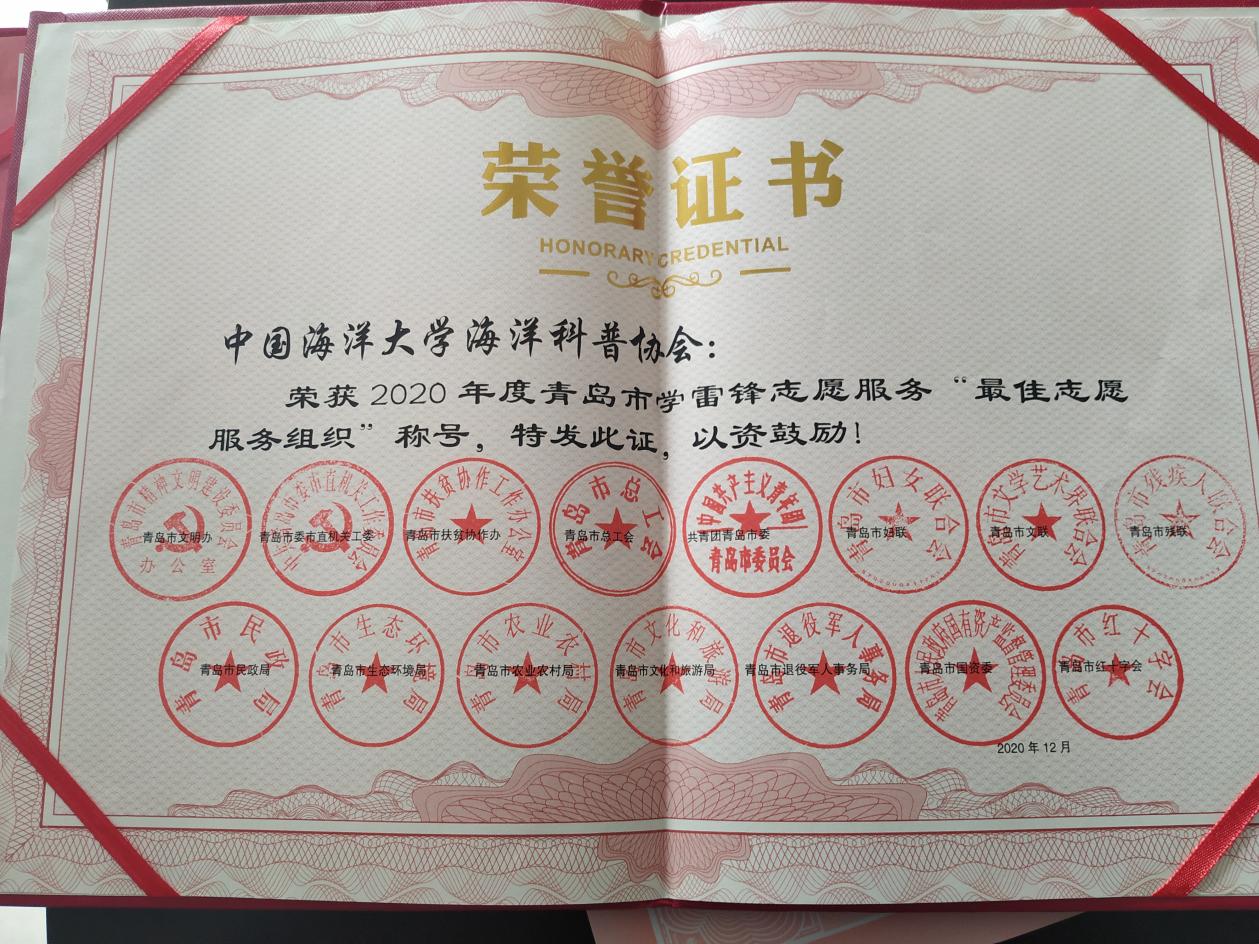 荣誉证书
HONORARY CREDENTIAL
中国海洋大学海洋科普协会：
荣获2020年度青岛市学雷锋志愿服务“最佳志愿
服务组织”称号，特发此证，以资鼓励！
青岛市文明办 青岛市委市直机关工委 青岛市扶贫协作办 青岛市总工会 共青团青岛市委 青岛市妇联 青岛市文联 青岛市残联
青岛市精神文明建设委员会
办公室
青岛市扶贫协作工作办公室
青岛市总工会
中国共产主义青年团
青岛市委员会
青岛市妇女联合会
青岛市文学艺术界联合会
青岛市残疾人联合会
青岛市民政局 青岛市生态环境局 青岛市农业农村局 青岛市文化和旅游局 青岛市退役军人事务局 青岛市国资委 青岛市红十字会
青岛市民政局
青岛市生态环境局
青岛市农业农村局
青岛市文化和旅游局
青岛市退役军人事务局
青岛市人民政府国有资产监督管理委员会
青岛市红十字会
2020年12月